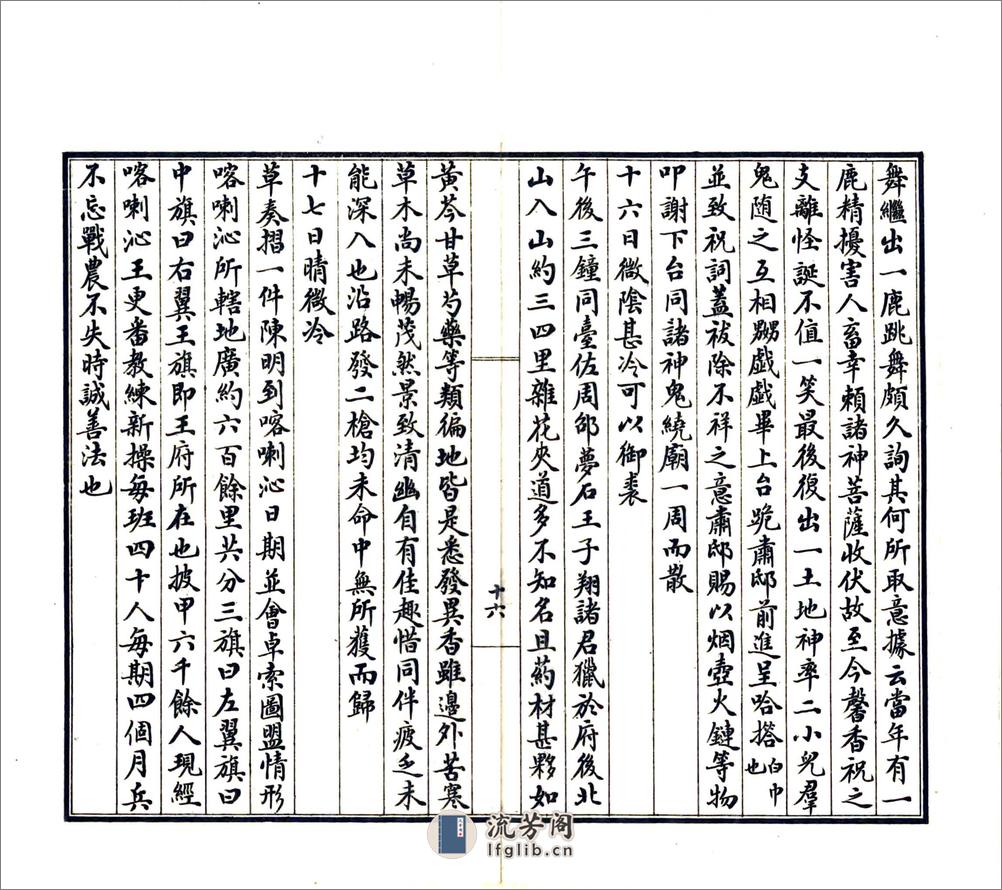 舞繼出一鹿跳舞頗久詢其何所取意據云當年有一
鹿精擾害人畜幸賴諸神菩薩收伏故至今馨香祝之
支離怪誕不值一笑最後復出一土地神率二小鬼羣
鬼随之互相嬲戲戲畢上台跪肅邸前進呈哈搭白巾也
並致祝詞蓋祓除不祥之意肅邸賜以烟壺火鏈等物
叩謝下台同諸神鬼繞廟一周而散
十六日微陰甚冷可以御裘
午後三鐘同臺佐周邵夢石王子翔諸君獵於府後北
山入山約三四里雜花夾道多不知名且葯材甚夥如
十六
黃芩甘草芍藥等類徧地皆是悉發異香雖邊外苦寒
草木尚未暢茂然景致清幽自有佳趣惜同伴疲乏未
能深入也沿路發二槍均未命中無所獲而歸
十七日晴微冷
草奏摺一件陳明到喀喇沁日期並會卓索圖盟情形
喀喇沁所轄地廣約六百餘里共分三旗曰左翼旗曰
中旗曰右翼王旗即王府所在也披甲六千餘人現經
喀喇沁王更番教練新操每班四十人每期四個月兵
不忘戰農不失時誠善法也
流芳阁
lfglib.cn